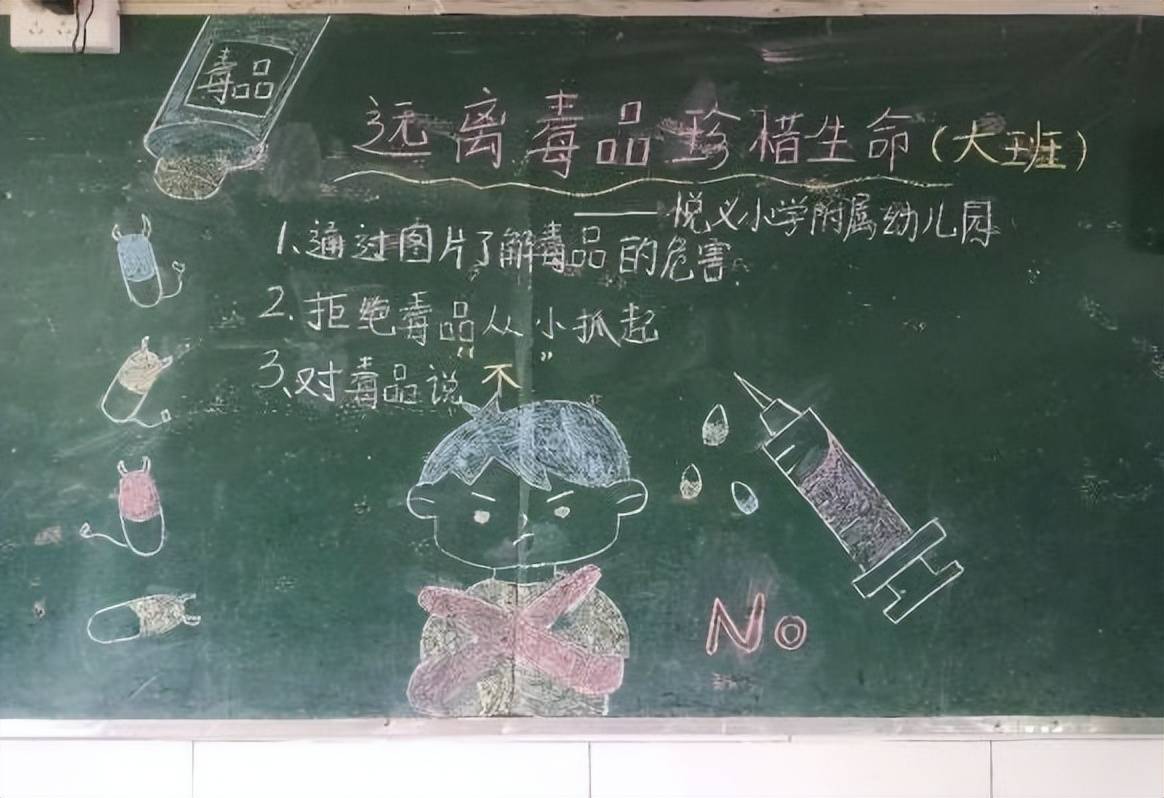 毒品
远离毒品珍惜生命(大班)
——悦义小学附属幼儿园
1、通过图片了解毒品的危害.
2、拒绝毒品从小抓起
3、对毒品说“不”
No